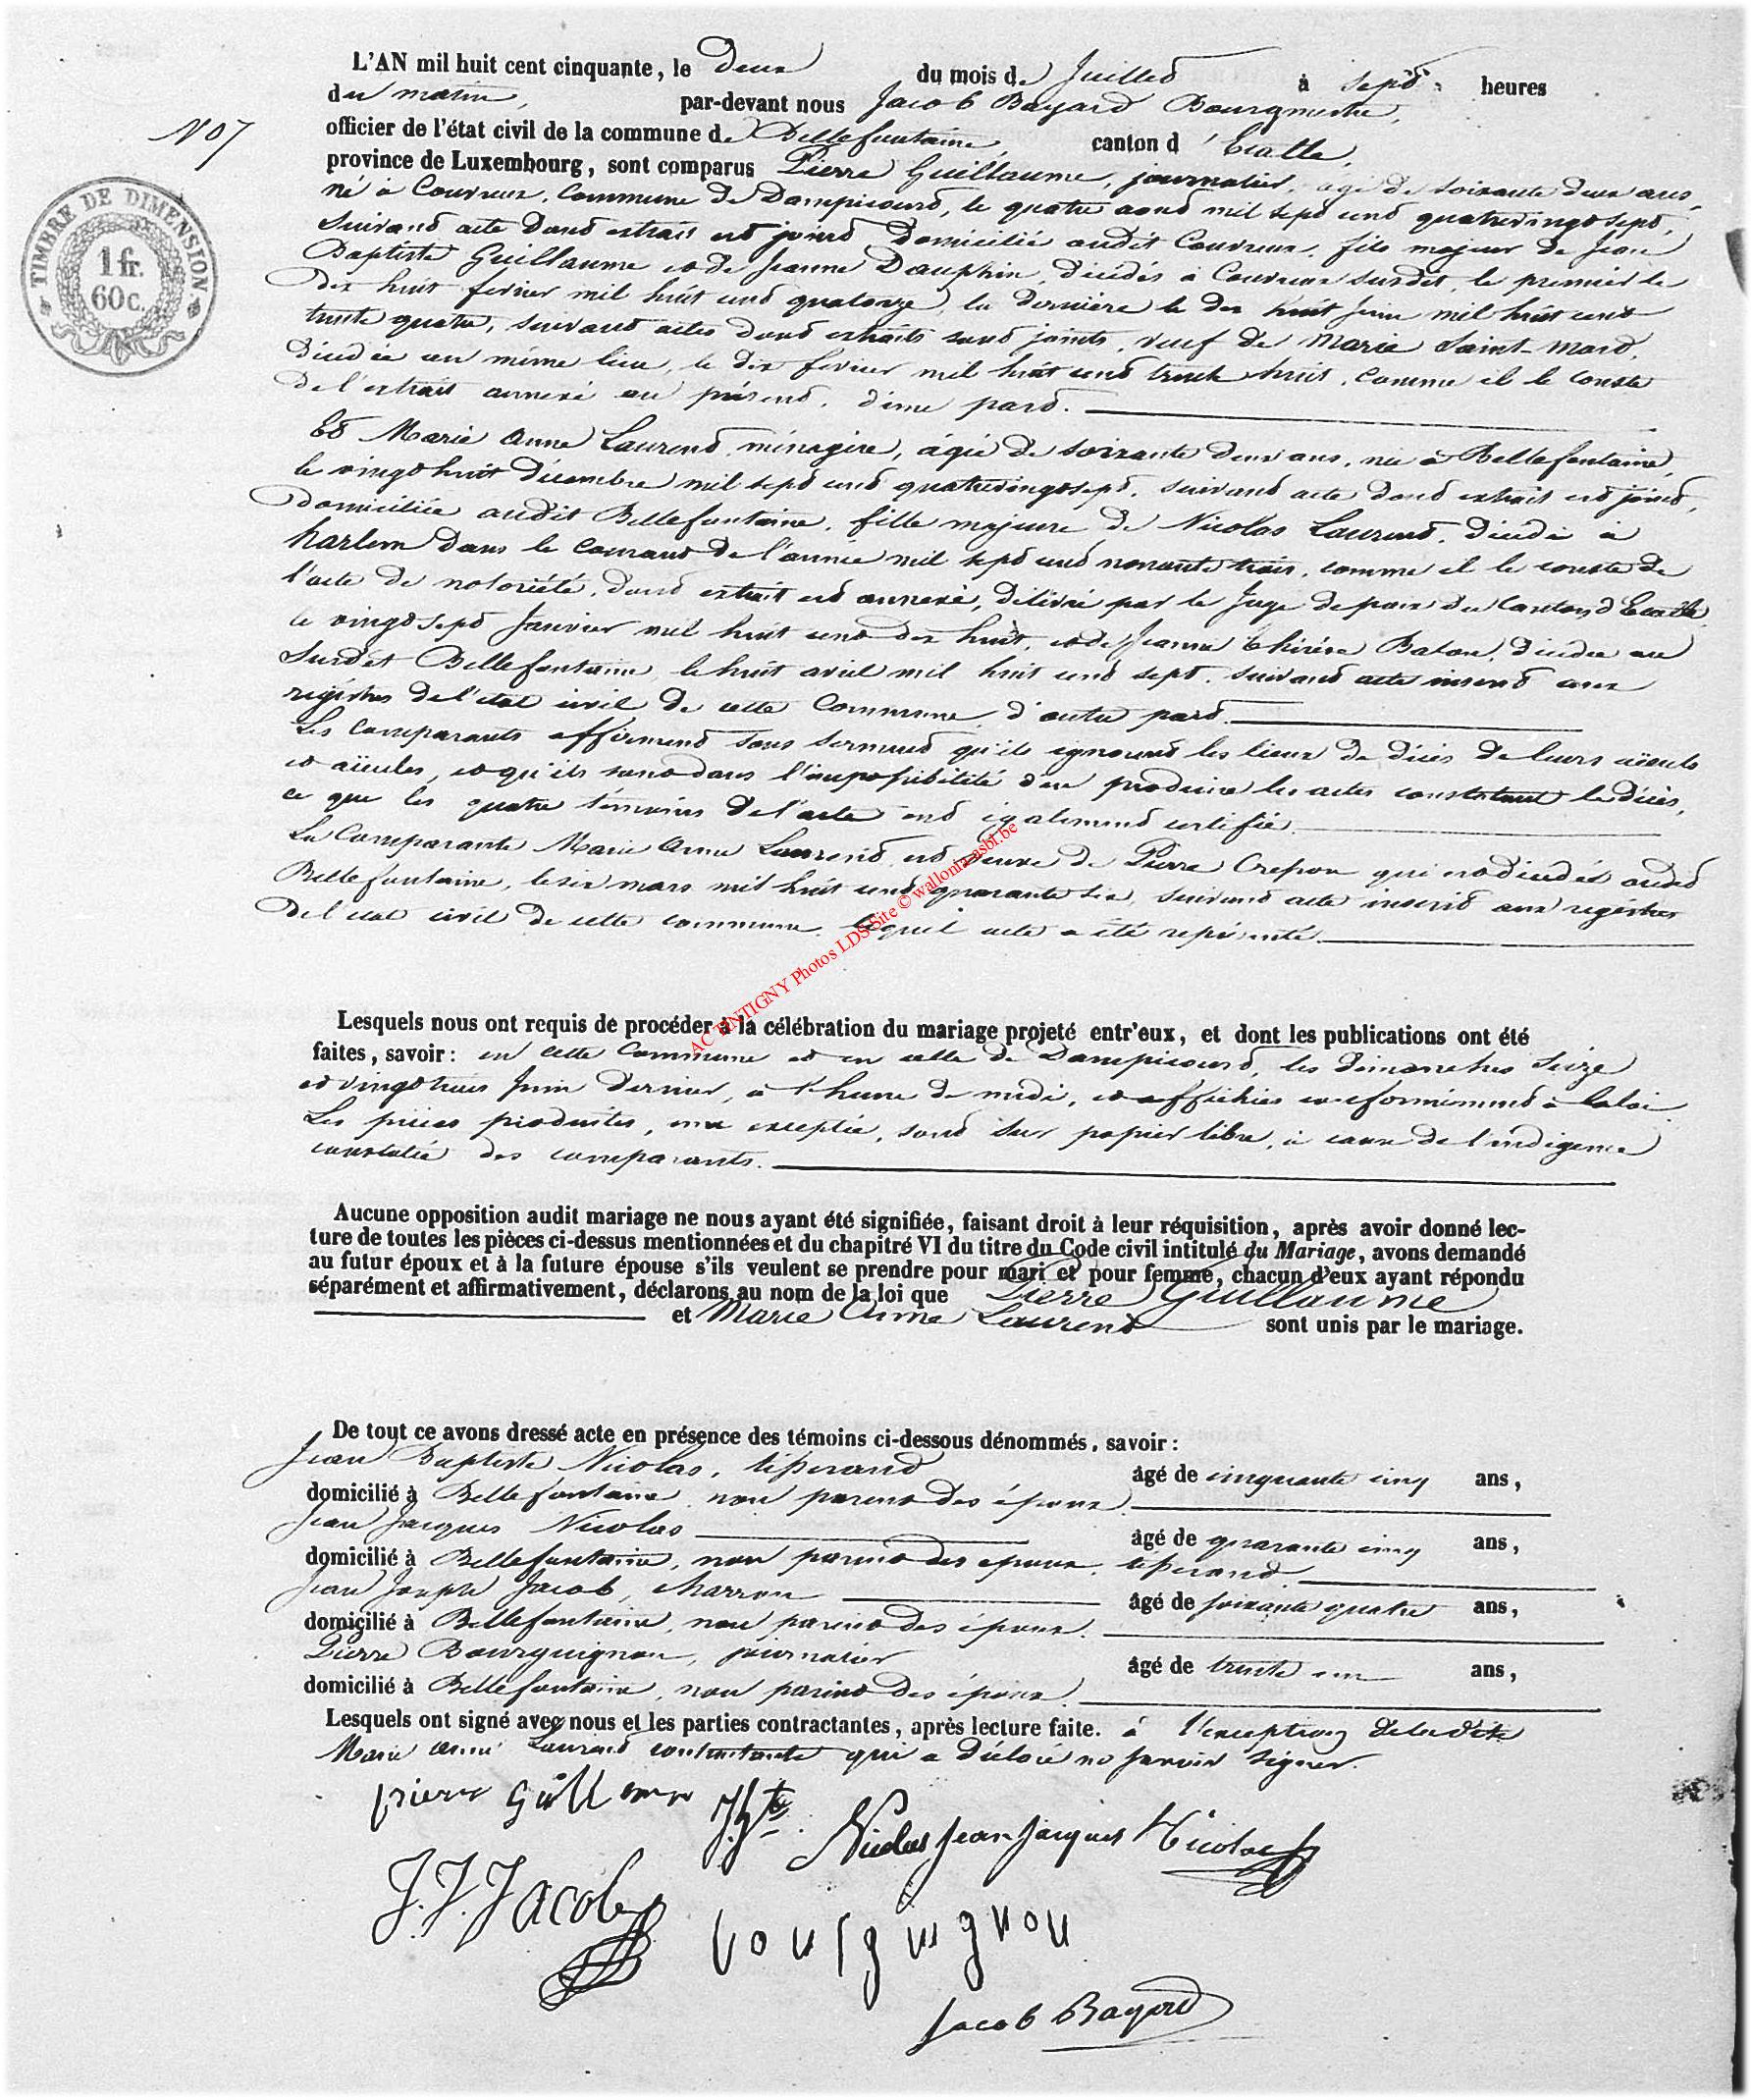 L'AN mil huit cent cinquante, le deux du mois de Juillet à sept heures
du matin, par-devant nous Jacob Bayard Bourgmestre,
N° 7
officier de l'état civil de la commune de Bellefontaine, canton d'Etalle,
province de Luxembourg, sont comparus Pierre Guillaume, journalier, agé de soixante deux ans,
né à Couvreux, commune de Dampicourt, le quatre aout mil sept cent quatrevingt sept,
suivant acte dont extrait est joint domicilié audit Couvreux, fils majeur de Jean
Baptiste Guillaume et de Jeanne Dauphin, décédés à Couvreux susdit, le premier le
dix huit fevrier mil huit cent quatorze, la dernière le dix huit Juin mil huit cent
trente quatre, suivant actes dont extraits sont joints, veuf de Marie Saint-Mard,
décédée au même lieu, le dix fevrier mil huit cent trente huit, comme il le conste
de l'extrait annexé au présent, d'une part.
Et Marie Anne Laurent, ménagère, agée de soixante deux ans, née à Bellefontaine,
le vingt huit décembre mil sept cent quatrevingt sept, suivant acte dont extrait est joint,
domiciliée audit Bellefontaine, fille majeure de Nicolas Laurent, décédé à
harlem dans le courant de l'année mil sept cent nonante trois, comme il le conste de
l'acte de notoriété, dont extrait est annexé, délivré par le Juge de paix du Canton d'Etalle
le vingt sept Janvier mil huit cent dix huit, et de Jeanne Thérèse Baton, décédée au
susdit Bellefontaine, le huit avril mil huit cent sept, suivant acte inscrit aux
registres de l'état civil de cette Commune, d'autre part.
Les comparants affirment sous serment qu'ils ignorent les lieux de décès de leurs aïeuls
et aïeules, et qu'ils sont dans l'impossibilité d'en produire les actes constatant le décès,
ce que les quatre témoins de l'acte ont également certifié.
La Comparante Marie Anne Laurent est veuve de Pierre Crepon qui est décédé audit
Bellefontaine, le six mars mil huit cent quarante six, suivant acte inscrit aux registres
de l'état civil de cette commune, lequel acte a été représenté.
AC TINTIGNY Photos LDS-Site © wallonia-asbl.be
Lesquels nous ont requis de procéder à la célébration du mariage projeté entr'eux, et dont les publications ont été
faites, savoir: en cette Commune et en celle de Dampicourt, les dimanches seize
et vingt trois Juin dernier, à l'heure de midi, et affichées conformément à la loi.
Les pièces produites, une exceptée, sont sur papier libre, à cause de l'indigence
constatée des comparants.
Aucune opposition audit mariage ne nous ayant été signifiée, faisant droit à leur réquisition, après avoir donné lec-
ture de toutes les pièces ci-dessus mentionnées et du chapitré VI du titre du Code civil intitulé du Mariage, avons demandé
au futur époux et à la future épouse s'ils veulent se prendre pour mari et pour femme, chacun d'eux ayant répondu
séparément et affirmativement, déclarons au nom de la loi que Pierre Guillaume
et Marie Anne Laurent sont unis par le mariage.
De tout ce avons dressé acte en présence des témoins ci-dessous dénommés, savoir:
Jean Baptiste Nicolas, tisserand âgé de cinquante cinq ans,
domicilié à Bellefontaine, non parent des époux
Jean Jacques Nicolas âgé de quarante cinq ans,
domicilié à Bellefontaine, non parent des époux, tisserand.
Jean Joseph Jacob, charron âgé de soixante quatre ans,
domicilié à Bellefontaine, non parent des époux.
Pierre Bourguignon, journalier âgé de trente un ans,
domicilié à Bellefontaine, non parent des époux.
Lesquels ont signé avec nous et les parties contractantes, après lecture faite. à l'exception de ladite
Marie Anne Laurent contractante qui a déclaré ne savoir signer.
pierre Guillaume J. Bte. Nicolas Jean Jacques Nicolas
J. J. Jacob bourguignon
Jacob Bayard
TIMBRE DE DIMENSION
1 fr.
60 c.